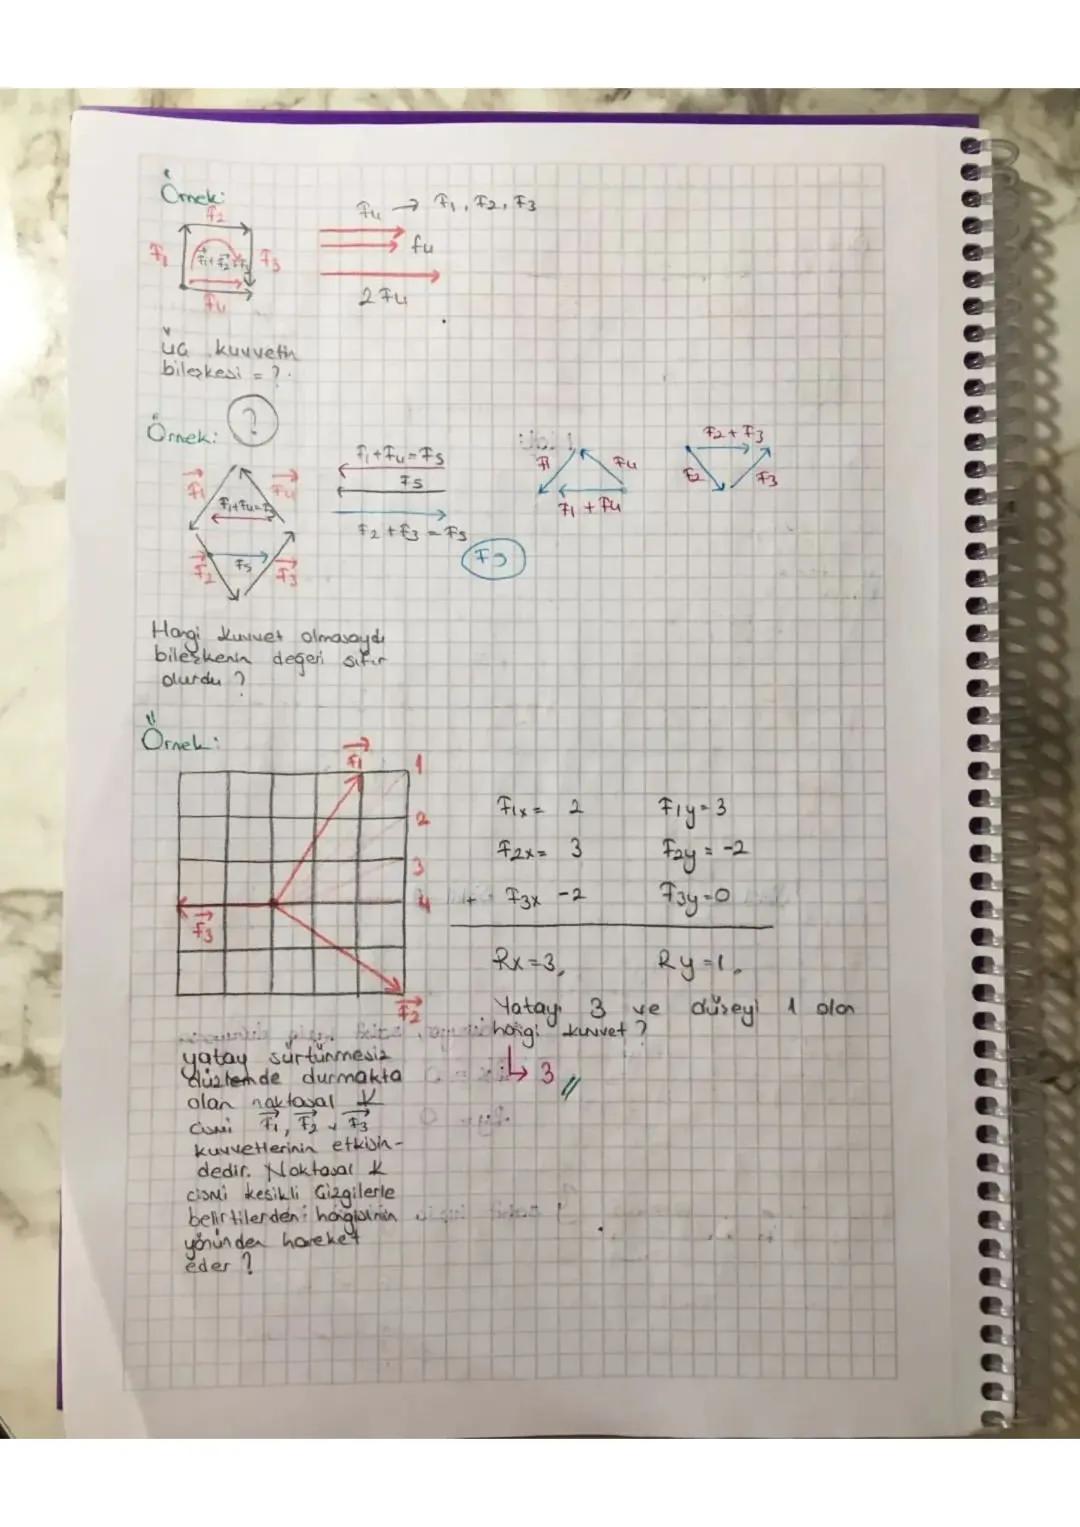 Örnek:
F2
F1
F1+F2+F3
F3
F4
F4 → F1, F2, F3
f4
2F4
üç kuvvetin
bileşkesi = ?
Örnek: ?
F1
F4
F1+F4=F5
F2
F5
F3
F1+F4=F5
F5
F2+F3=F5
F5
F1
F4
F1+F4
F2+F3
F2
F3
Hangi kuvvet olmasaydı
bileşkenin değeri sıfır
olurdu ?
Örnek:
F1
1
2
3
4
F3
F2
F1x= 2 F1y=3
F2x= 3 F2y=-2
+ F3x -2 F3y=0
Rx=3, Ry=1.
Yatayı 3 ve düşeyi 1 olan
hangi kuvvet ?
↳ 3 //
yatay sürtünmesiz
düzlemde durmakta
olan noktasal K
cismi F1, F2, F3
kuvvetlerinin etkisin-
dedir. Noktasal K
cismi kesikli Çizgilerle
belirtilerden hangisinin
yönünden hareket
eder ?